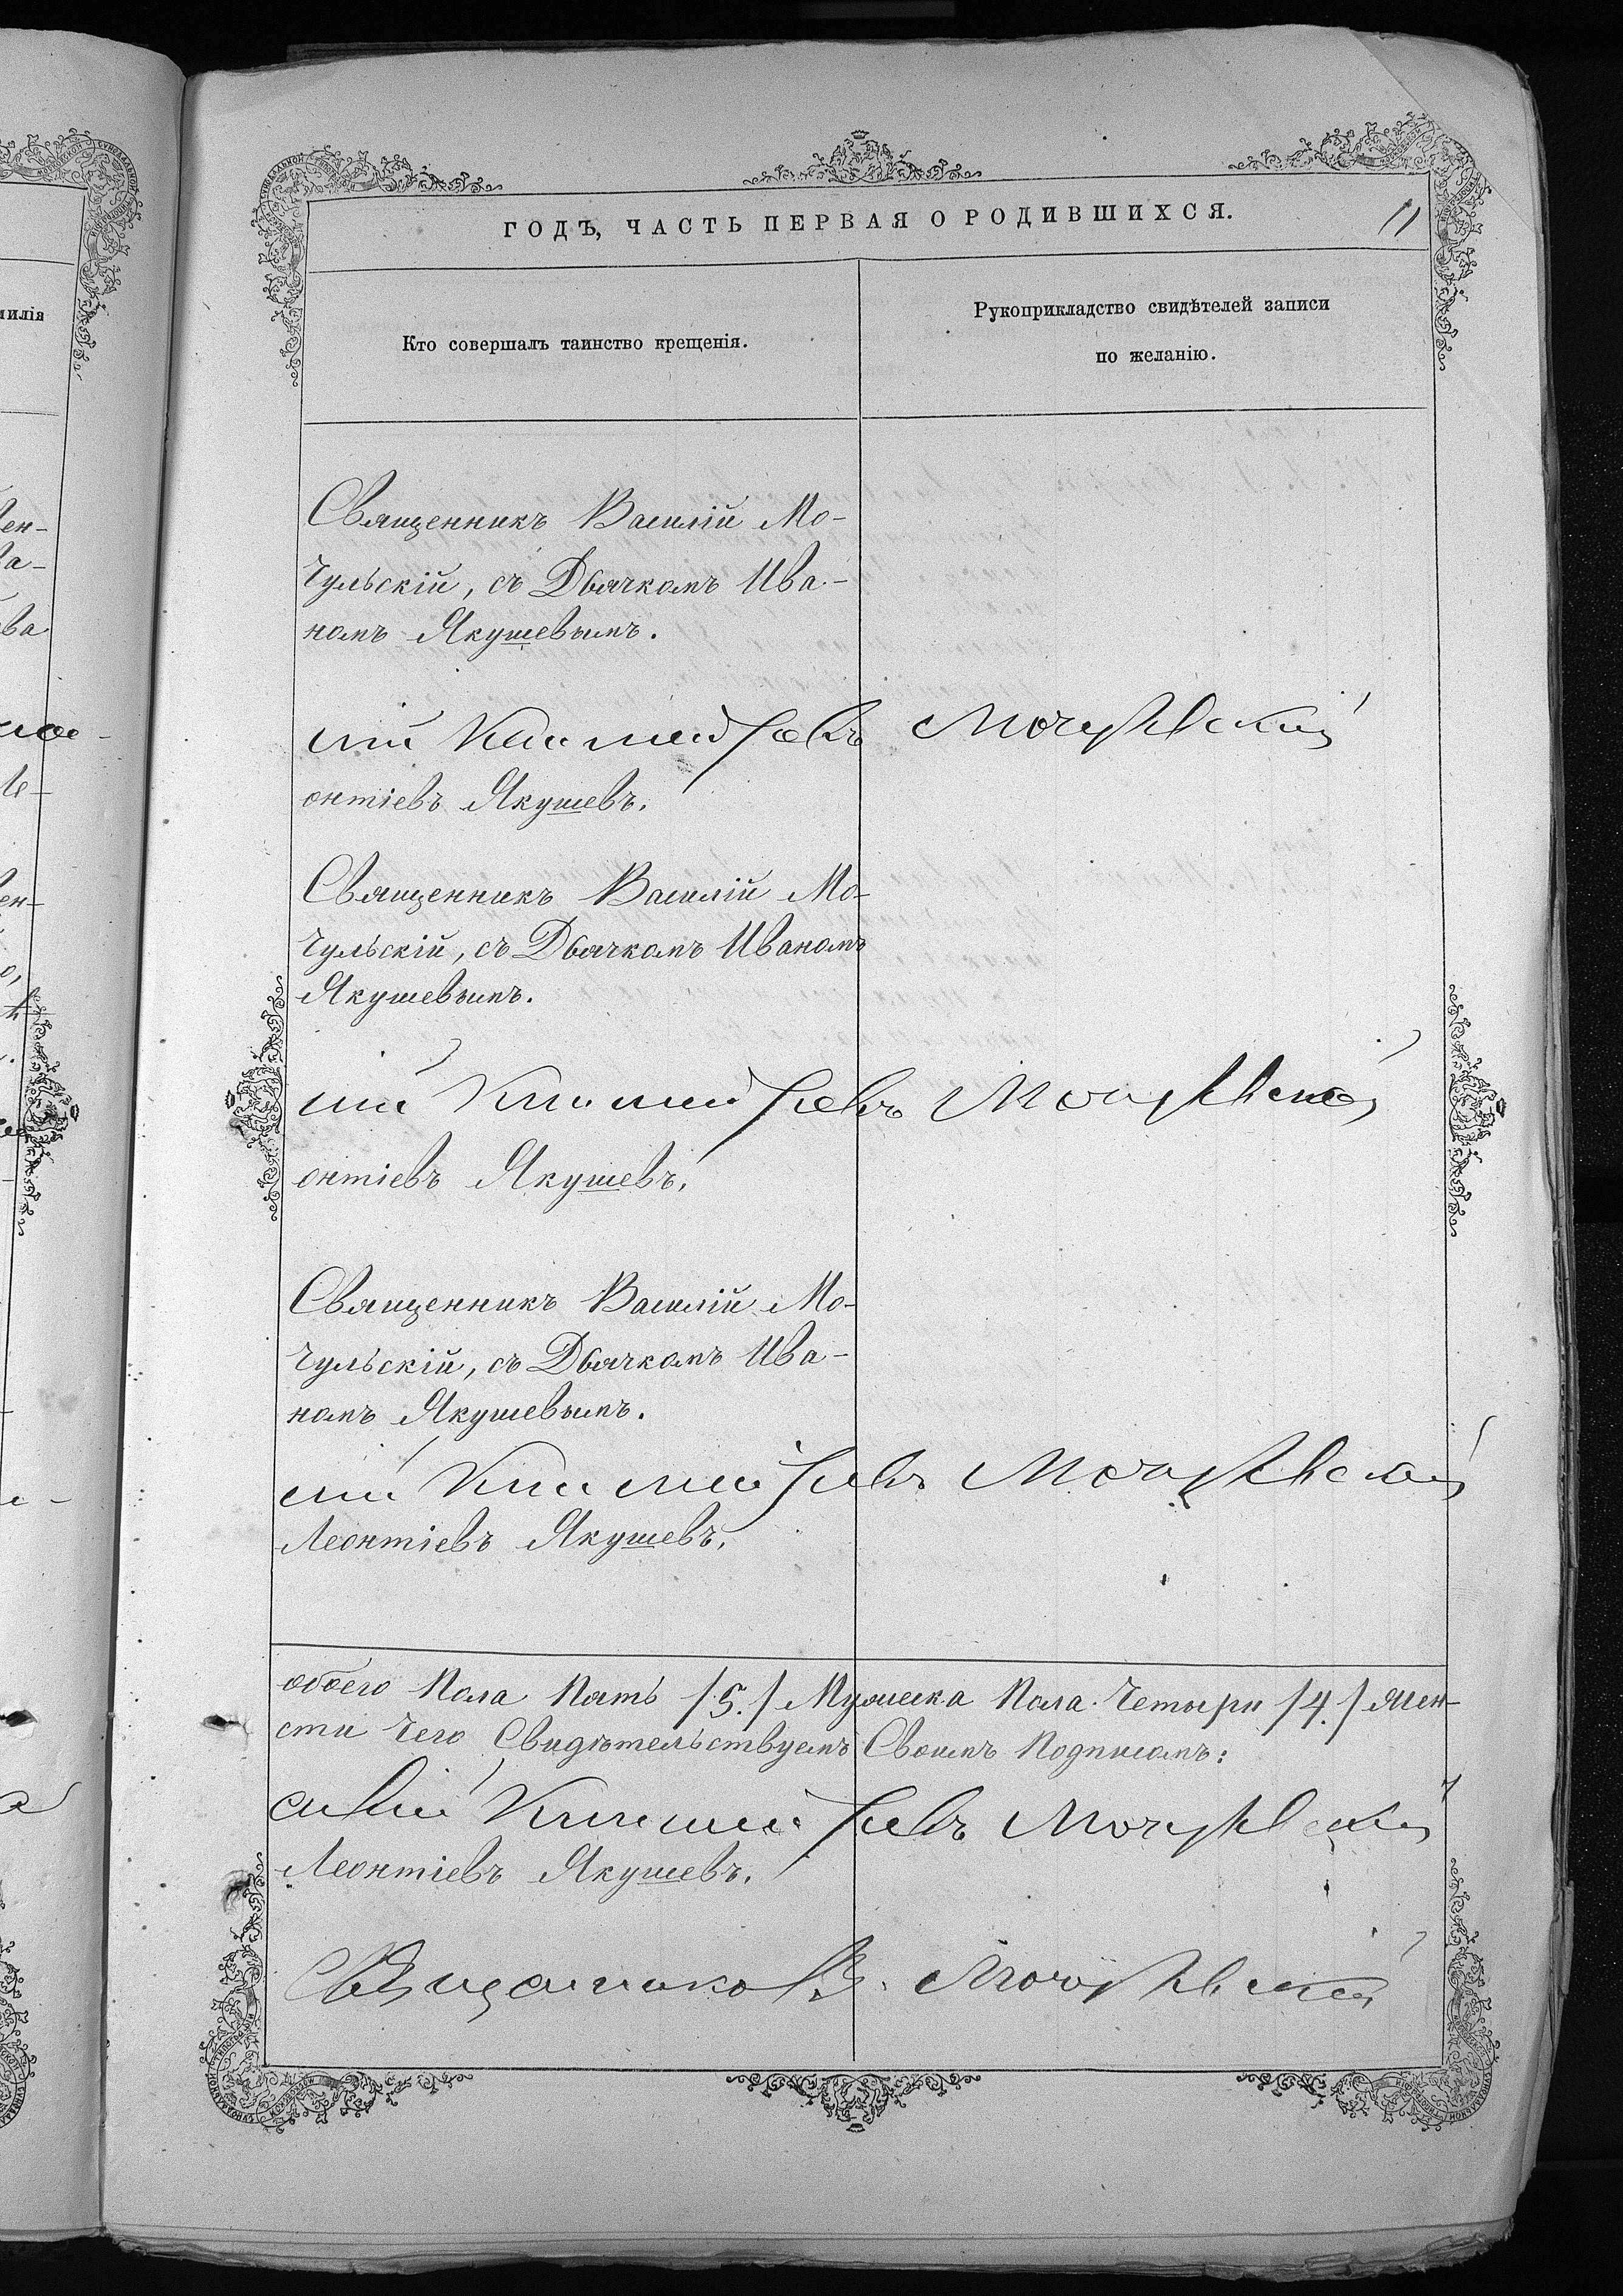 ГОДЪ, ЧАСТЬ ПЕРВАЯ О РОДИВШИХСЯ.
11
Кто совершалъ таинство крещенія.
Рукоприкладство свидѣтелей записи
по желанію.
Священникъ Василій Мо-
чульскій, съ Дьячкомъ Ива-
номъ Якушевымъ.
Мочульскій
онтіевъ Якушевъ.
Священникъ Василій Мо-
чульскій, съ Дьячкомъ Иваномъ
Якушевымъ.
Мочульскій
онтіевъ Якушевъ.
Священникъ Василій Мо-
чульскій, съ Дьячкомъ Ива-
номъ Якушевымъ.
Мочульскій
Леонтіевъ Якушевъ.
обоего Пола Пять /5./ Мужеска Пола Четыри /4./ Жен-
сти чего Свидѣтельствуемъ Своимъ Подписомъ:
Мочульскій
Леонтіевъ Якушевъ.
Мочульскій
милія